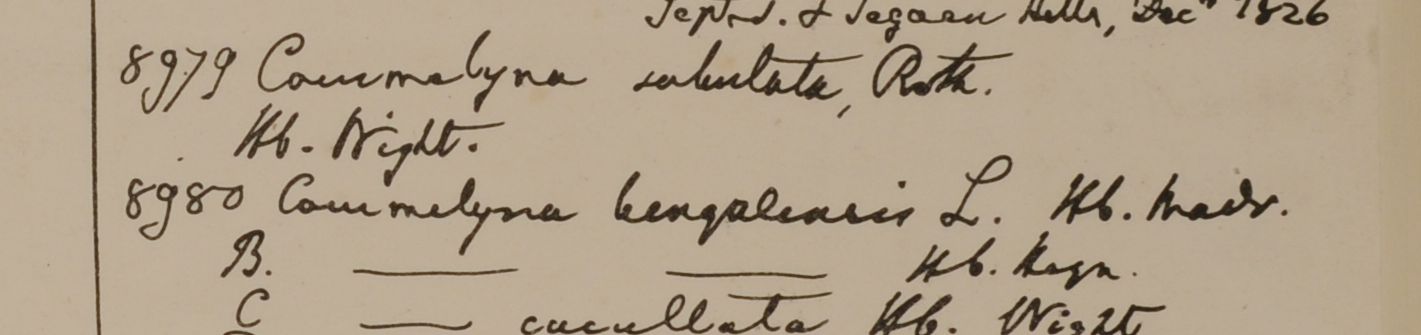 Hills, Dec^r 1826
8979 Commelyna subulata, Roth.
Hb. Wight.
8980 Commelyna bengalensis L. Hb. Madr.
B. —— —— Hb. Heyn.
C —— cucullata Hb. Wight